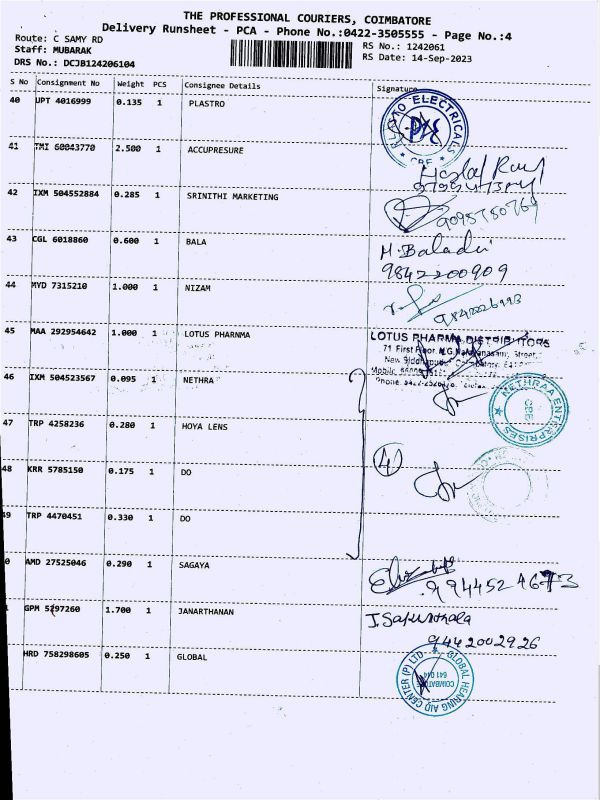 THE PROFESSIONAL COURIERS, COIMBATORE
Delivery Runsheet - PCA - Phone No.:0422-3505555 - Page No.:4
Route: C SAMY RD
Staff: MUBARAK
DRS No.: DCJB124206104
RS No.: 1242061
RS Date: 14-Sep-2023
S No Consignment No Weight PCS Consignee Details Signature
40 UPT 4016999 0.135 1 PLASTRO
ELECTRICALS
CBE
41 TMI 60043770 2.500 1 ACCUPRESURE
42 IXM 504552884 0.285 1 SRINITHI MARKETING
9095750769
43 CGL 6018860 0.600 1 BALA
M. Baladi
9842200909
44 MYD 7315210 1.000 1 NIZAM
45 MAA 292954642 1.000 1 LOTUS PHARNMA
LOTUS PHARMA DISTRIBUTORS
71 First Floor, N.G. Narayanasamy Street,
46 IXM 504523567 0.095 1 NETHRA
NETHRAA ENTERPRISES
CBE
47 TRP 4258236 0.280 1 HOYA LENS
4
48 KRR 5785150 0.175 1 DO
49 TRP 4470451 0.330 1 DO
0 AMD 27525046 0.290 1 SAGAYA
9944524673
GPM 5297260 1.700 1 JANARTHANAN
J. Sakunthala
9442002926
HRD 758298605 0.250 1 GLOBAL
GLOBAL HEARING AID CENTER (P) LTD
COIMBATORE
641 014